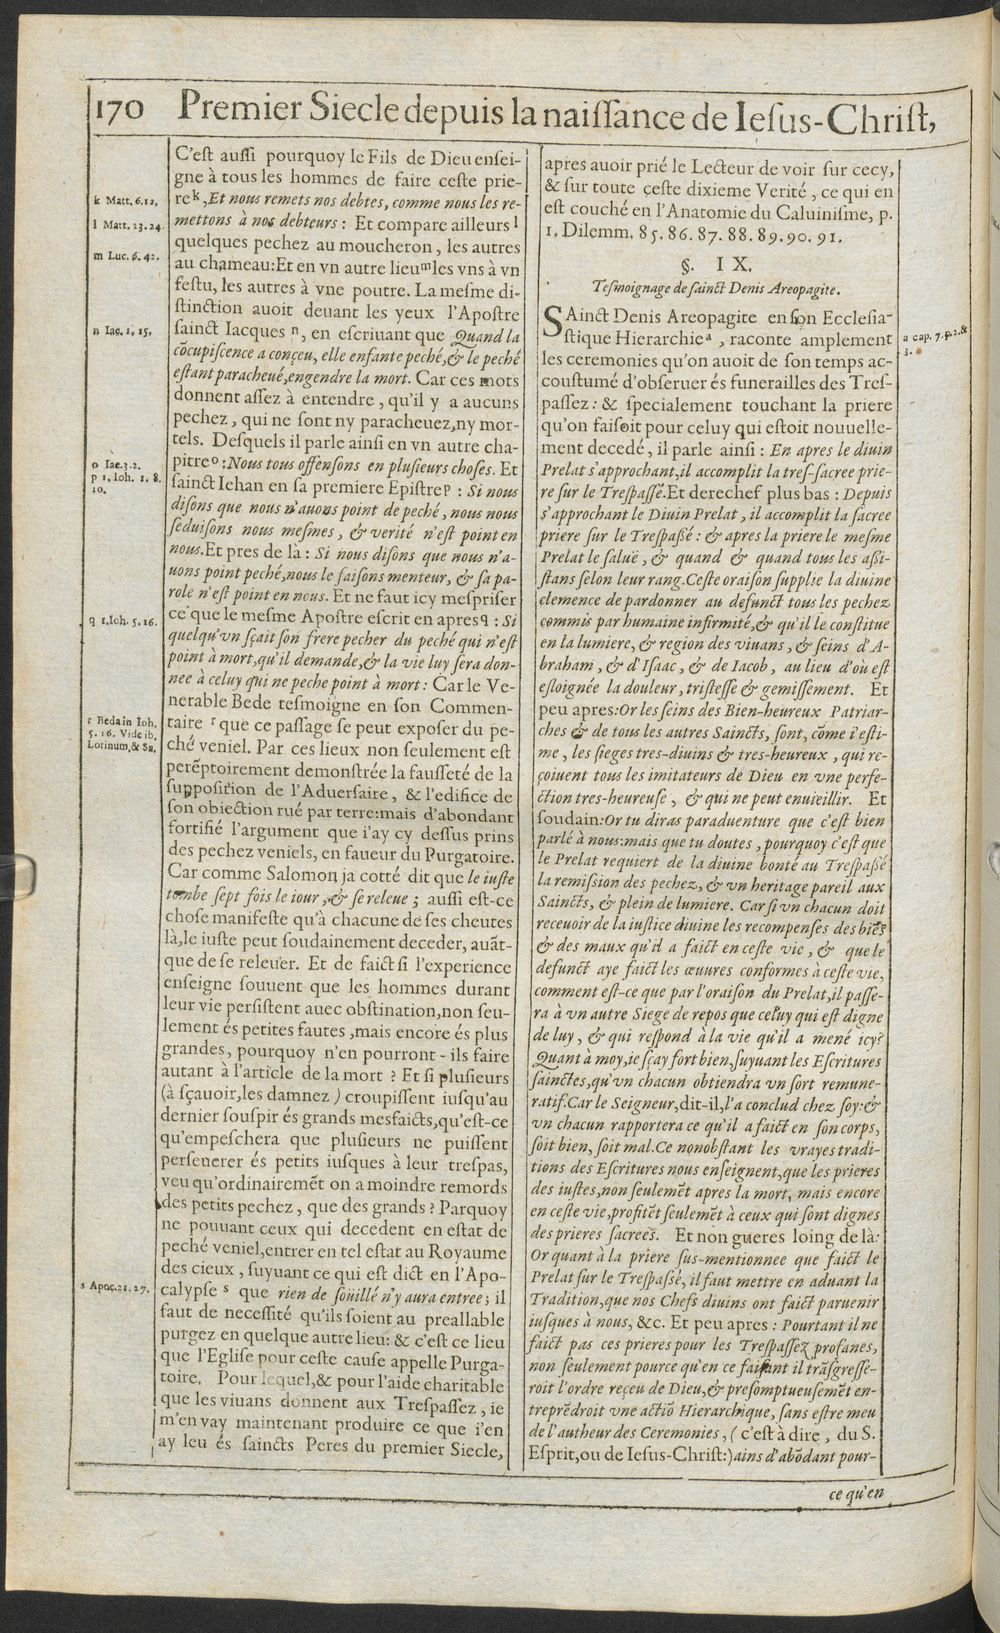 170 Premier Siecle depuis la naiſſance de Ieſus-Chriſt,
C'eſt auſſi pourquoy le Fils de Dieu enſei-
gne à tous les hommes de faire ceſte prie-
re k, Et nous remets nos debtes, comme nous les re-
mettons à nos debteurs : Et compare ailleurs l
quelques pechez au moucheron, les autres
au chameau: Et en vn autre lieu m les vns à vn
feſtu, les autres à vne poutre. La meſme di-
ſtinction auoit deuant les yeux l'Apoſtre
ſainct Iacques n, en eſcriuant que Quand la
cõcupiſcence a conçeu, elle enfante peché, & le peché
eſtant paracheué, engendre la mort. Car ces mots
donnent aſſez à entendre, qu'il y a aucuns
pechez, qui ne ſont ny paracheuez, ny mor-
tels. Deſquels il parle ainſi en vn autre cha-
pitre o : Nous tous offenſons en pluſieurs choſes. Et
ſainct Iehan en ſa premiere Epiſtre p : Si nous
diſons que nous n'auons point de peché, nous nous
ſeduiſons nous meſmes, & verité n'eſt point en
nous. Et pres de là : Si nous diſons que nous n'a-
uons point peché, nous le faiſons menteur, & ſa pa-
role n'eſt point en nous. Et ne faut icy meſpriſer
ce que le meſme Apoſtre eſcrit en apres q : Si
quelqu'vn ſçait ſon frere pecher du peché qui n'eſt
point à mort, qu'il demande, & la vie luy ſera don-
nee à celuy qui ne peche point à mort : Car le Ve-
nerable Bede teſmoigne en ſon Commen-
taire r que ce paſſage ſe peut expoſer du pe-
ché veniel. Par ces lieux non ſeulement eſt
perẽptoirement demonſtrée la fauſſeté de la
ſuppoſition de l'Aduerſaire, & l'edifice de
ſon obiection rué par terre: mais d'abondant
fortifié l'argument que i'ay cy deſſus prins
des pechez veniels, en faueur du Purgatoire.
Car comme Salomon ja cotté dit que le iuſte
tombe ſept fois le iour, & ſe releue ; auſſi eſt-ce
choſe manifeſte qu'à chacune de ſes cheutes
là, le iuſte peut ſoudainement deceder, auãt-
que de ſe releuer. Et de faict ſi l'experience
enſeigne ſouuent que les hommes durant
leur vie perſiſtent auec obſtination, non ſeu-
lement és petites fautes, mais encore és plus
grandes, pourquoy n'en pourront-ils faire
autant à l'article de la mort ? Et ſi pluſieurs
(à ſçauoir, les damnez) croupiſſent iuſqu'au
dernier ſouſpir és grands mesfaicts, qu'eſt-ce
qu'empeſchera que pluſieurs ne puiſſent
perſeuerer és petits iuſques à leur treſpas,
veu qu'ordinairemẽt on a moindre remords
des petits pechez, que des grands ? Parquoy
ne pouuant ceux qui decedent en eſtat de
peché veniel, entrer en tel eſtat au Royaume
des cieux, ſuyuant ce qui eſt dict en l'Apo-
calypſe s que rien de ſoüillé n'y aura entree ; il
faut de neceſſité qu'ils ſoient au preallable
purgez en quelque autre lieu: & c'eſt ce lieu
que l'Egliſe pour ceſte cauſe appelle Purga-
toire. Pour lequel, & pour l'aide charitable
que les viuans donnent aux Treſpaſſez, ie
m'en vay maintenant produire ce que i'en
ay leu és ſaincts Peres du premier Siecle,
k Matt. 6.12.
l Matt. 23.24.
m Luc. 6.42.
n Iac. 1, 15.
o Iac. 3.2.
p 1. Ioh. 1. 8.
10.
q 1. Ioh. 5.16.
r Beda in Ioh.
5. 16. Vide ib.
Lorinum, & Sa.
s Apoc. 21.27.
apres auoir prié le Lecteur de voir ſur cecy,
& ſur toute ceſte dixieme Verité, ce qui en
eſt couché en l'Anatomie du Caluiniſme, p.
1. Dilemm. 85. 86. 87. 88. 89. 90. 91.
§. IX.
Teſmoignage de ſainct Denis Areopagite.
SAinct Denis Areopagite en ſon Eccleſia-
ſtique Hierarchie a, raconte amplement
les ceremonies qu'on auoit de ſon temps ac-
couſtumé d'obſeruer és funerailles des Treſ-
paſſez : & ſpecialement touchant la priere
qu'on faiſoit pour celuy qui eſtoit nouuelle-
ment decedé, il parle ainſi : En apres le diuin
Prelat s'approchant, il accomplit la treſ-ſacree prie-
re ſur le Treſpaſſé. Et derechef plus bas : Depuis
s'approchant le Diuin Prelat, il accomplit la ſacree
priere ſur le Treſpaßé : & apres la priere le meſme
Prelat le ſaluë, & quand & quand tous les aßi-
ſtans ſelon leur rang. Ceſte oraiſon ſupplie la diuine
clemence de pardonner au defunct tous les pechez
commis par humaine infirmité, & qu'il le conſtitue
en la lumiere, & region des viuans, & ſeins d'A-
braham, & d'Iſaac, & de Iacob, au lieu d'où eſt
eſloignée la douleur, triſteſſe & gemiſſement. Et
peu apres: Or les ſeins des Bien-heureux Patriar-
ches & de tous les autres Saincts, ſont, cõme i'eſti-
me, les ſieges tres-diuins & tres-heureux, qui re-
çoiuent tous les imitateurs de Dieu en vne perfe-
ction tres-heureuſe, & qui ne peut enuieillir. Et
ſoudain: Or tu diras paraduenture que c'eſt bien
parlé à nous: mais que tu doutes, pourquoy c'eſt que
le Prelat requiert de la diuine bonté au Treſpaßé
la remißion des pechez, & vn heritage pareil aux
Saincts, & plein de lumiere. Car ſi vn chacun doit
receuoir de la iuſtice diuine les recompenſes des biẽs
& des maux qu'il a faict en ceſte vie, & que le
defunct aye faict les œuures conformes à ceſte vie,
comment eſt-ce que par l'oraiſon du Prelat, il paſſe-
ra à vn autre Siege de repos que celuy qui eſt digne
de luy, & qui reſpond à la vie qu'il a mené icy?
Quant à moy, ie ſçay fort bien, ſuyuant les Eſcritures
ſainctes, qu'vn chacun obtiendra vn ſort remune-
ratif. Car le Seigneur, dit-il, l'a conclud chez ſoy: &
vn chacun rapportera ce qu'il a faict en ſon corps,
ſoit bien, ſoit mal. Ce nonobſtant les vrayes tradi-
tions des Eſcritures nous enſeignent, que les prieres
des iuſtes, non ſeulemẽt apres la mort, mais encore
en ceſte vie, profitẽt ſeulemẽt à ceux qui ſont dignes
des prieres ſacrees. Et non gueres loing de là:
Or quant à la priere ſus-mentionnee que faict le
Prelat ſur le Treſpaßé, il faut mettre en aduant la
Tradition, que nos Chefs diuins ont faict paruenir
iuſques à nous, &c. Et peu apres : Pourtant il ne
faict pas ces prieres pour les Treſpaſſez profanes,
non ſeulement pource qu'en ce faiſant il trãſgreſſe-
roit l'ordre reçeu de Dieu, & preſomptueuſemẽt en-
treprẽdroit vne actiõ Hierarchique, ſans eſtre meu
de l'autheur des Ceremonies, (c'eſt à dire, du S.
Eſprit, ou de Ieſus-Chriſt:) ains d'abõdant pour-
a cap. 7. p. 2. &
3.
ce qu'en